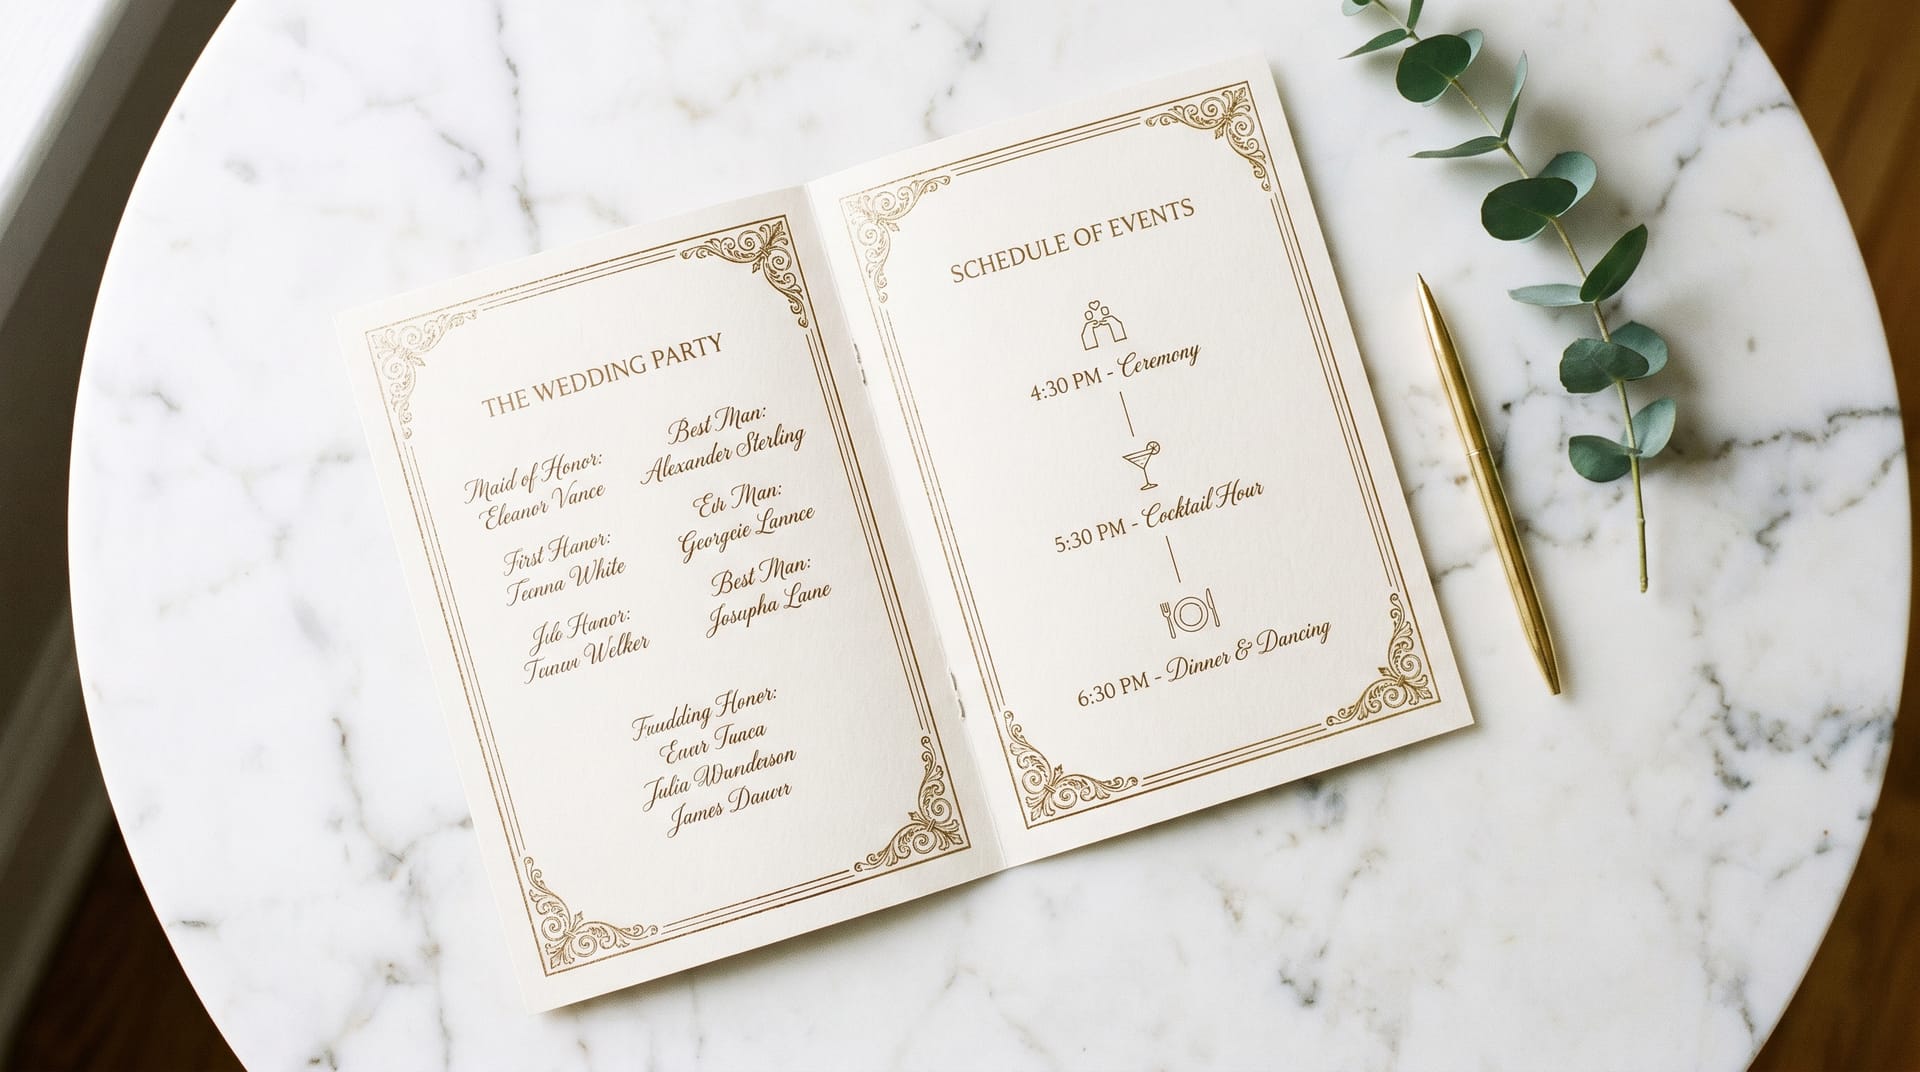 THE WEDDING PARTY
Maid of Honor:
Eleanor Vance
First Hanor:
Tecnna White
Jdo Hanor:
Welker
Best Man:
Alexander Sterling
Man:
Georgcie Lannce
Best Man:
Josupha Laune
Fuudding Honer:
Eucur Tunca
Julia Wunderson
James
SCHEDULE OF EVENTS
4:30 PM - Ceremony
5:30 PM - Cocktail Hour
6:30 PM - Dinner & Dancing